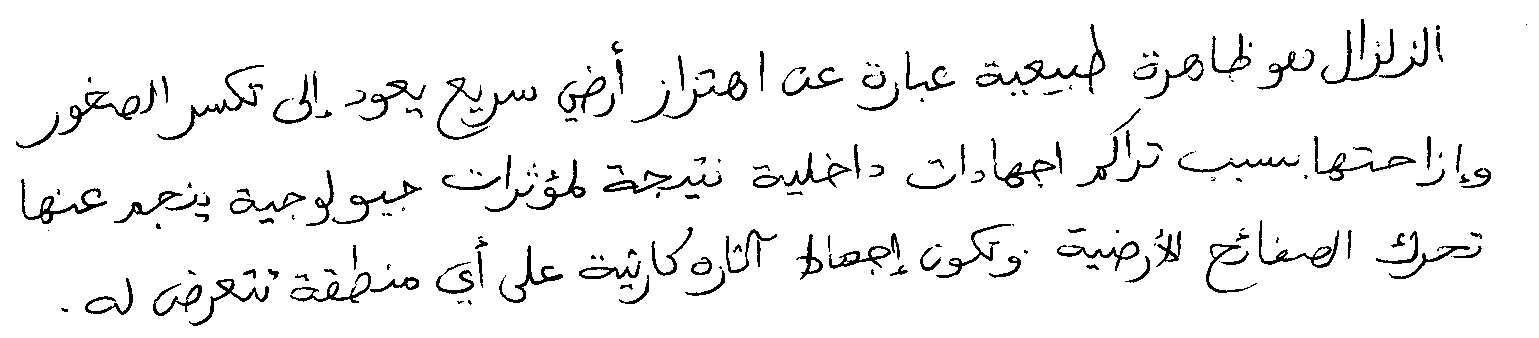 الزلزال هو ظاهرة طبيعية عبارة عن اهتزاز أرضي سريع يعود إلى تكسر الصخور
وإزاحتها بسبب تراكم اجهادات داخلية نتيجة لمؤثرات جيولوجية ينجم عنها
تحرك الصفائح الأرضية وتكون إجمالا آثاره كارثية على أي منطقة تتعرض له .